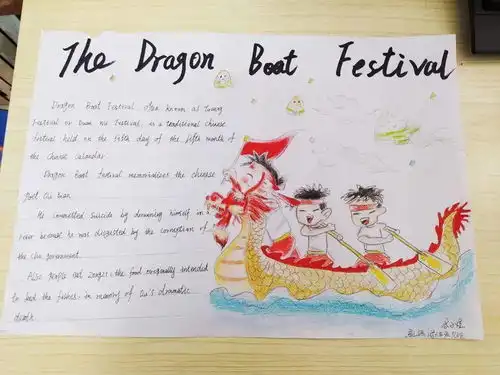 The Dragon Boat Festival
Dragon Boat Festival, often known as Tuen
Festival or Duan Wu Festival, is a traditional Chinese
festival held on the fifth day of the fifth month of
the Chinese calendar.
Dragon Boat Festival memorialises the chinese
poet Qu Yuan.
He committed suicide by drowning himself in a
river because he was disgusted by the corruption of
the Chu government.
Also people eat Zongzi, the food originally intended
to feed the fishes, in memory of Qu's dramatic
death.